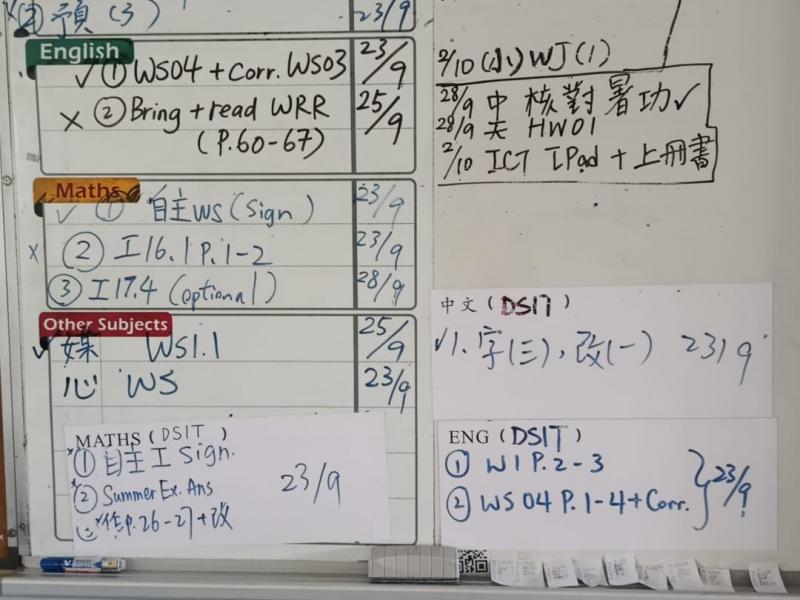 預(3) 23/9
English
✓ ① WS04 + Corr. WS03 23/9
× ② Bring + read WRR 25/9
(P.60-67)
Maths
✓ ① 自主WS (Sign) 23/9
× ② 工16.1 P.1-2 23/9
③ 工17.4 (optional) 28/9
Other Subjects
✓ 媒 WS1.1 25/9
心 WS 23/9
MATHS (DSIT)
① 自主工 Sign.
② Summer Ex. Ans 23/9
作P.26-27+改
2/10 (小) WJ(1)
28/9 中 核對暑功✓
28/9 天 HW01
2/10 ICT IPad + 上冊書
中文 (DSIT)
✓1. 字(三), 改(一) 23/9
ENG (DSIT)
① W1 P.2-3
② WS 04 P.1-4 + Corr. } 23/9